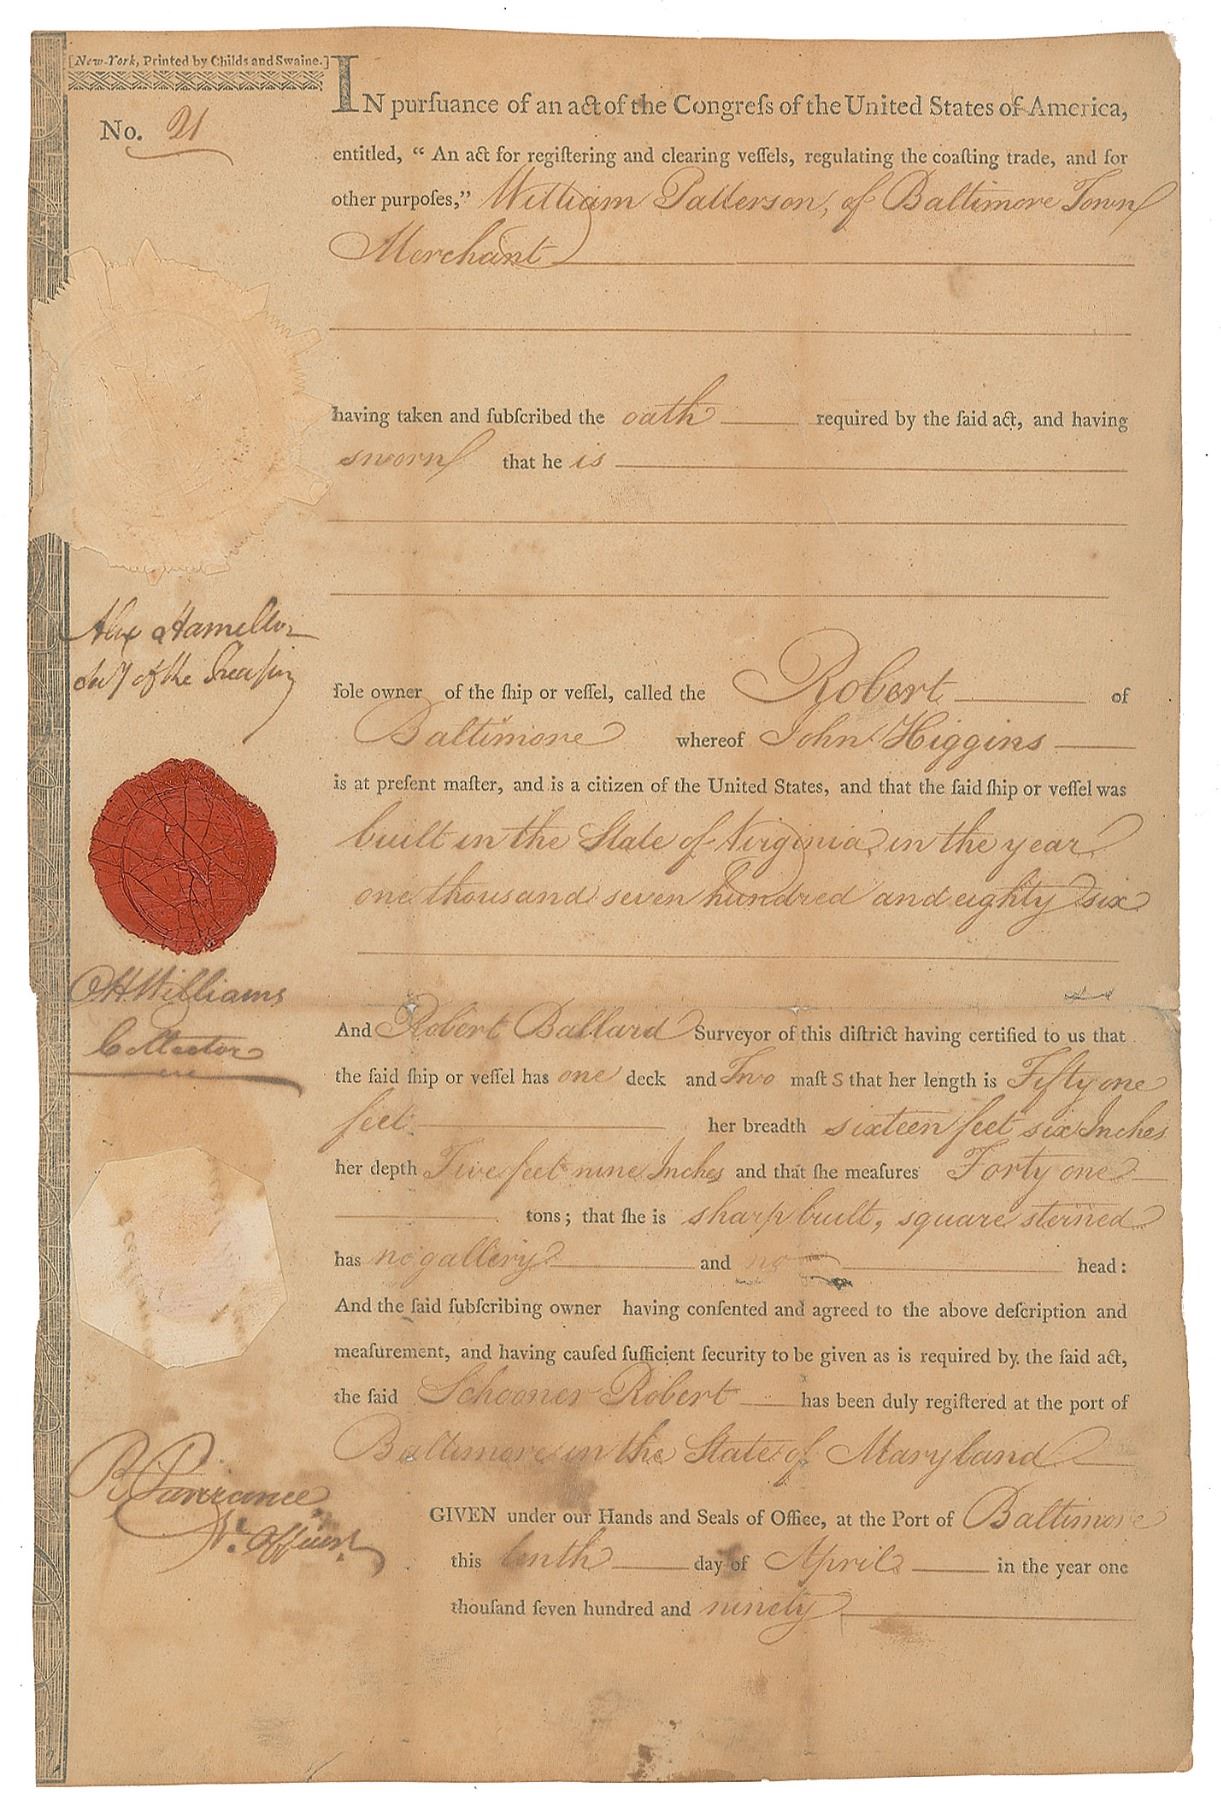 [New-York, Printed by Childs and Swaine.]
No. 21
IN purſuance of an act of the Congreſs of the United States of America,
entitled, “ An act for regiſtering and clearing veſſels, regulating the coaſting trade, and for
other purpoſes,” William Patterson, of Baltimore Town
Merchant
having taken and ſubſcribed the oath required by the ſaid act, and having
sworn that he is
ſole owner of the ſhip or veſſel, called the Robert of
Baltimore whereof John Higgins
is at preſent maſter, and is a citizen of the United States, and that the ſaid ſhip or veſſel was
built in the State of Virginia in the year
one thousand seven hundred and eighty six
And Robert Ballard Surveyor of this diſtrict having certified to us that
the ſaid ſhip or veſſel has one deck and Two maſts that her length is Fifty one
feet her breadth sixteen feet six Inches
her depth Five feet nine Inches and that ſhe meaſures Forty one
tons; that ſhe is sharp built, square sterned
has no gallery and no head:
And the ſaid ſubſcribing owner having conſented and agreed to the above deſcription and
meaſurement, and having cauſed ſufficient ſecurity to be given as is required by the ſaid act,
the ſaid Schooner Robert has been duly regiſtered at the port of
Baltimore in the State of Maryland
GIVEN under our Hands and Seals of Office, at the Port of Baltimore
this tenth day of April in the year one
thouſand ſeven hundred and ninety
Alex Hamilton
Secy of the Treasury
O H Williams
Collector
R Purviance
Nl. Officer